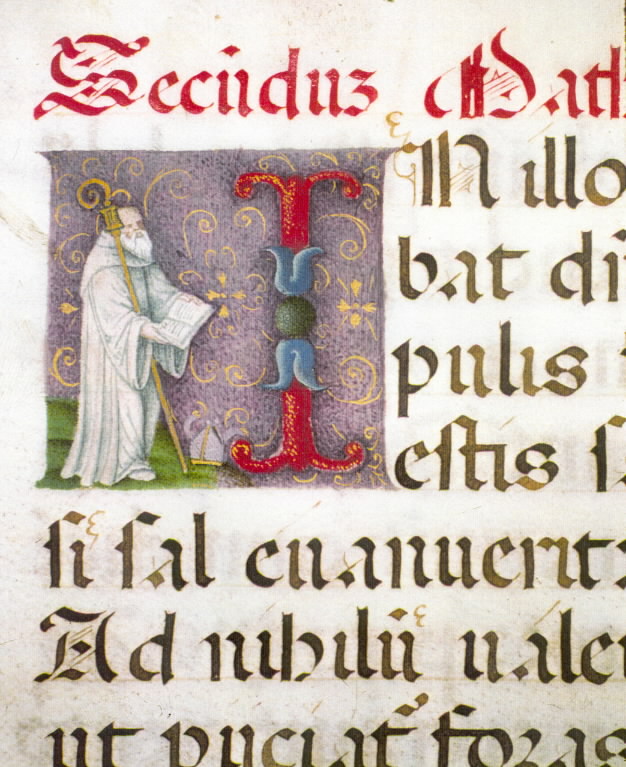 Secūduz Math
IN illo
bat di
pulis
estis s
si sal euanuerit:
Ad nihilū ualei
ut ꝓiciat᷑ foras